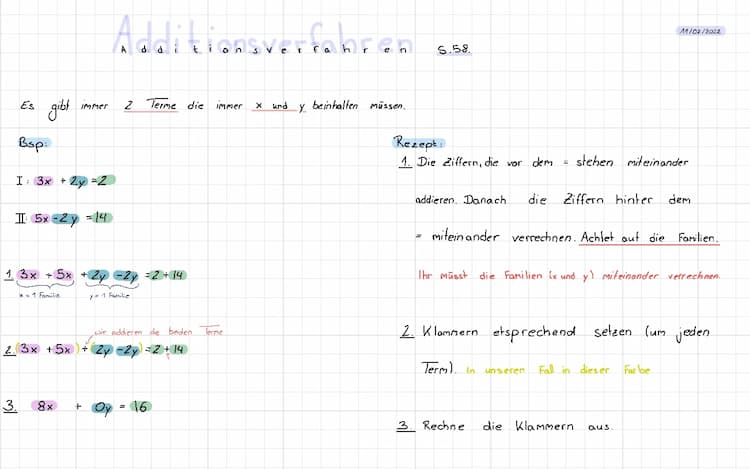 Additionsverfahren
Additionsverfahren S.58.
11/02/2022
Es gibt immer 2 Terme die immer x und y beinhalten müssen.
Bsp:
I: 3x + 2y = 2
II: 5x - 2y = 14
1. 3x + 5x + 2y - 2y = 2 + 14
x = 1 Familie y = 1 Familie
wir addieren die beiden Terme
2. (3x + 5x) + (2y - 2y) = 2 + 14
3. 8x + 0y = 16
Rezept:
1. Die Ziffern, die vor dem = stehen miteinander
addieren. Danach die Ziffern hinter dem
= miteinander verrechnen. Achtet auf die Familien.
Ihr müsst die Familien (x und y) miteinander verrechnen.
2. Klammern etsprechend setzen (um jeden
Term). In unseren Fall in dieser Farbe
3. Rechne die Klammern aus.